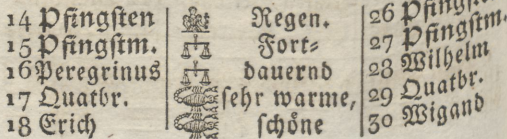 14 Pfingsten Regen. 26 Pfingst
15 Pfingstm. Fort- 27 Pfingstm.
16 Peregrinus dauernd 28 Wilhelm
17 Quatbr. sehr warme, 29 Quatbr.
18 Erich schöne 30 Wigand